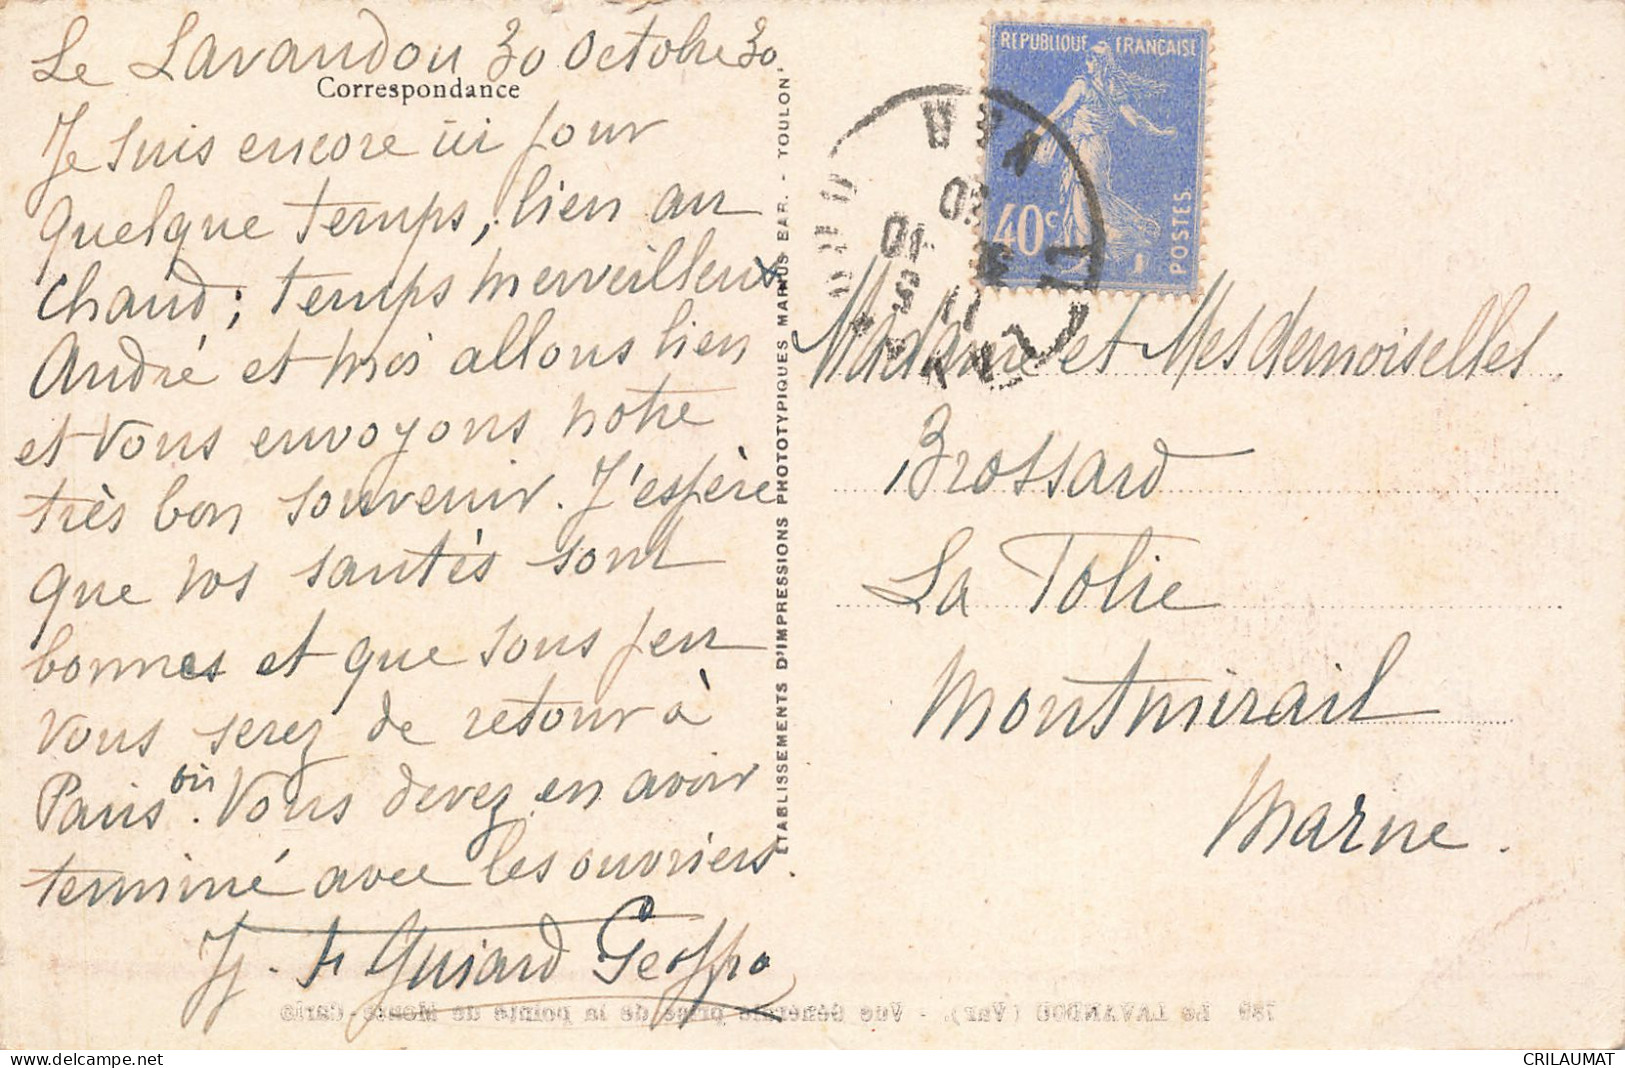 Le Lavandou 30 Octobre 30
Correspondance
Je suis encore ici pour
quelque temps, bien au
chaud; temps merveilleux
André et moi allons bien
et vous envoyons notre
très bon souvenir. J'espère
que vos santés sont
bonnes et que sous peu
vous serez de retour à
Paris où vous devez en avoir
terminé avec les ouvriers.
Guiard
ETABLISSEMENTS D'IMPRESSIONS PHOTOTYPIQUES MARIUS BAR. - TOULON
REPUBLIQUE FRANÇAISE
40c
POSTES
VAR
Madame et Mesdemoiselles
Brossard
La Tolie
Montmirail
Marne.
789 Le LAVANDOU (Var). - Vue Générale prise de la pointe de Monte-Carlo
CRILAUMAT